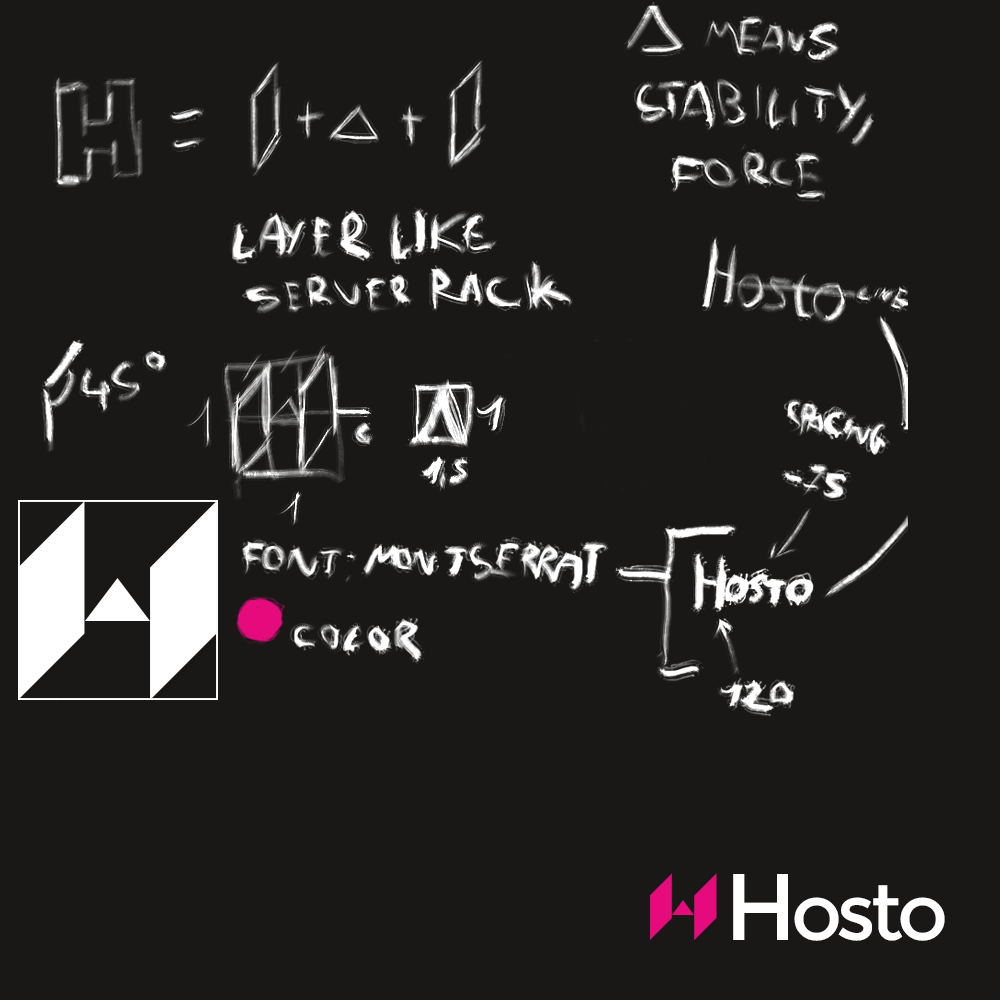 Δ MEANS
STABILITY,
FORCE
H = + Δ +
LAYER LIKE
SERVER RACK
Hosto LINE
45°
1
c
1
1,5
1
SPACING
-75
FONT: MONTSERRAT
HOSTO
COLOR
120
Hosto